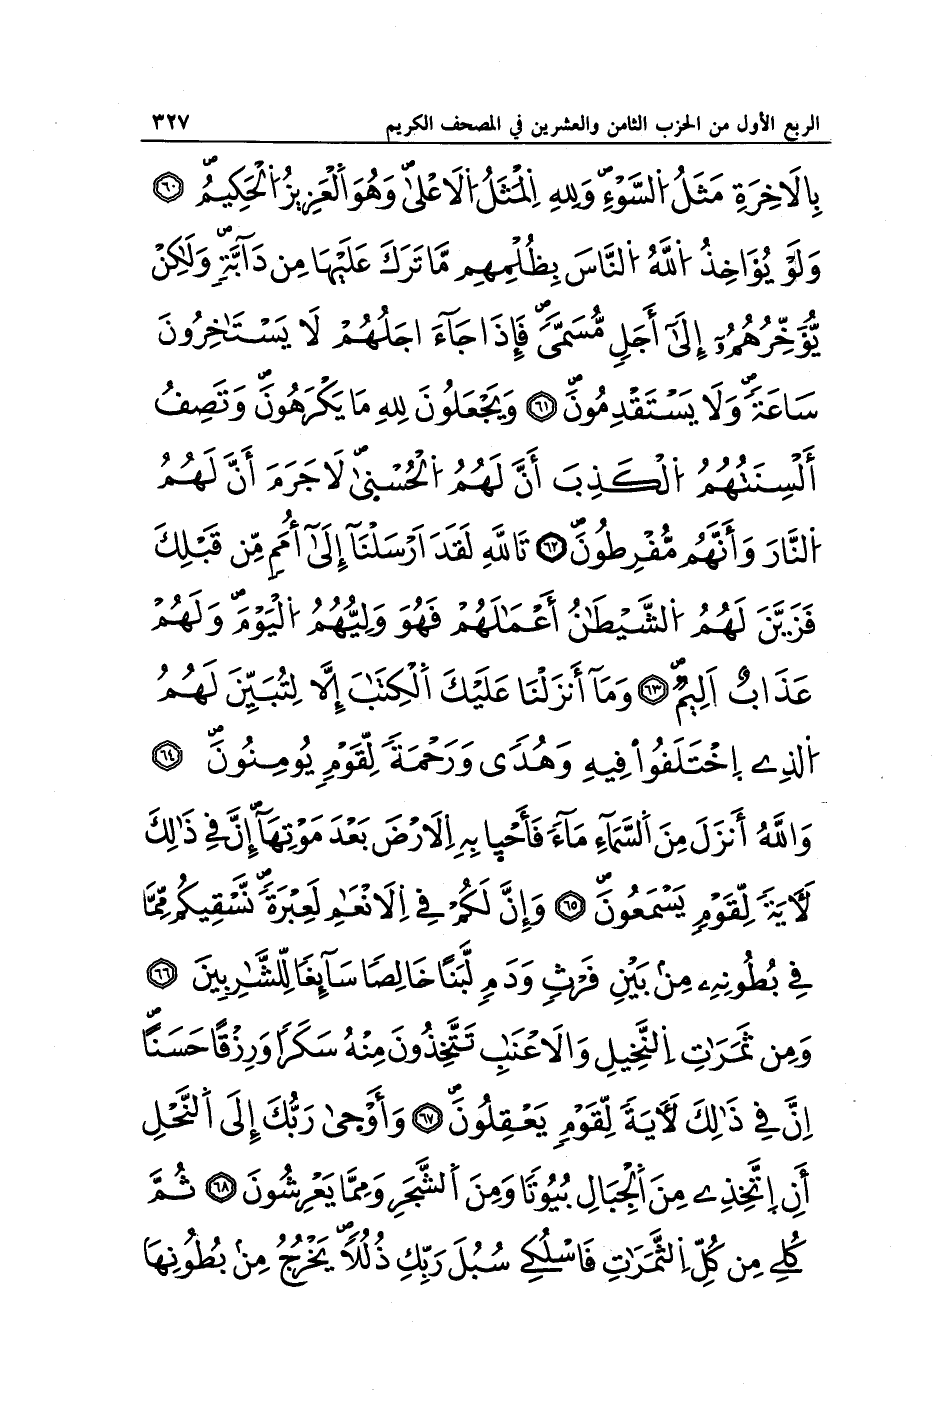 الربع الأول من الحزب الثامن والعشرين في المصحف الكريم ٣٢٧
بِالَاخِرَةِ مَثَلُ اُ۬لسَّوْءِۖ وَلِلهِ اِ۬لْمَثَلُ اُ۬لَاعْل۪ىٰۖ وَهُوَ اَ۬لْعَزِيزُ اُ۬لْحَكِيمُۖ ۝٦٠
وَلَوْ يُؤَاخِذُ اُ۬للَّهُ اُ۬لنَّاسَ بِظُلْمِهِم مَّا تَرَكَ عَلَيْهَا مِن دَآبَّةٖۖ وَلَٰكِنْ
يُّؤَخِّرُهُمُۥٓ إِلَىٰٓ أَجَلٖ مُّسَمّىٗۖ فَإِذَا جَآءَ اجَلُهُمْ لَا يَسْتَٰخِرُونَ
سَاعَةٗۖ وَلَا يَسْتَقْدِمُونَۖ ۝٦١ وَيَجْعَلُونَ لِلهِ مَا يَكْرَهُونَۖ وَتَصِفُ
أَلْسِنَتُهُمُ اُ۬لْكَذِبَ أَنَّ لَهُمُ اُ۬لْحُسْن۪ىٰۖ لَا جَرَمَ أَنَّ لَهُمُ
اُ۬لنَّارَ وَأَنَّهُم مُّفْرِطُونَۖ ۝٦٢ تَاللَّهِ لَقَدَ اَرْسَلْنَآ إِلَىٰٓ أُمَمٖ مِّن قَبْلِكَ
فَزَيَّنَ لَهُمُ اُ۬لشَّيْطَٰنُ أَعْمَٰلَهُمْ فَهُوَ وَلِيُّهُمُ اُ۬لْيَوْمَۖ وَلَهُمْ
عَذَابٌ اَلِيمٞۖ ۝٦٣ وَمَآ أَنزَلْنَا عَلَيْكَ اَ۬لْكِتَٰبَ إِلَّا لِتُبَيِّنَ لَهُمُ
اُ۬لذِے اِ۪خْتَلَفُواْ فِيهِ وَهُدىٗ وَرَحْمَةٗ لِّقَوْمٖ يُومِنُونَۖ ۝٦٤
وَاللَّهُ أَنزَلَ مِنَ اَ۬لسَّمَآءِ مَآءٗ فَأَحْي۪ا بِهِ اِ۬لَارْضَ بَعْدَ مَوْتِهَآۖ إِنَّ فِے ذَٰلِكَ
لَأٓيَةٗ لِّقَوْمٖ يَسْمَعُونَۖ ۝٦٥ وَإِنَّ لَكُمْ فِے اِ۬لَانْعَٰمِ لَعِبْرَةٗۖ نَّسْقِيكُم مِّمَّا
فِے بُطُونِهِۦ مِنۢ بَيْنِ فَرْثٖ وَدَمٖ لَّبَناً خَالِصاٗ سَآئِغاٗ لِّلشَّٰرِبِينَ ۝٦٦
وَمِن ثَمَرَٰتِ اِ۬لنَّخِيلِ وَالَاعْنَٰبِ تَتَّخِذُونَ مِنْهُ سَكَراٗ وَرِزْقاً حَسَناًۖ
اِنَّ فِے ذَٰلِكَ لَأٓيَةٗ لِّقَوْمٖ يَعْقِلُونَۖ ۝٦٧ وَأَوْح۪ىٰ رَبُّكَ إِلَى اَ۬لنَّحْلِ
أَنِ اِ۪تَّخِذِے مِنَ اَ۬لْجِبَالِ بُيُوتاٗ وَمِنَ اَ۬لشَّجَرِ وَمِمَّا يَعْرِشُونَ ۝٦٨ ثُمَّ
كُلِے مِن كُلِّ اِ۬لثَّمَرَٰتِ فَاسْلُكِے سُبُلَ رَبِّكِ ذُلُلاٗۖ يَخْرُجُ مِنۢ بُطُونِهَا